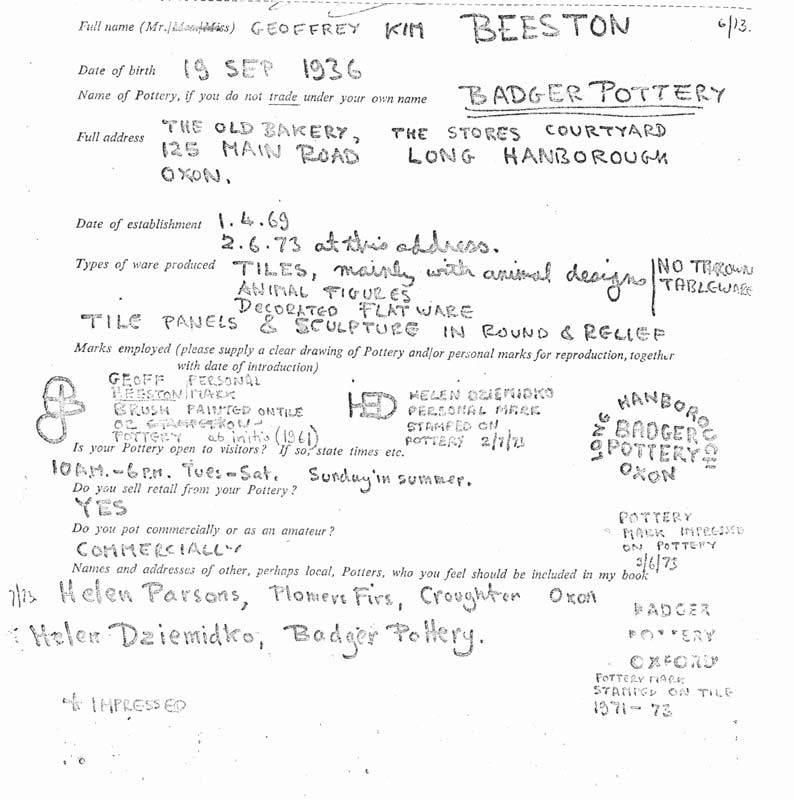 Full name (Mr./Mrs./Miss) GEOFFREY KIM BEESTON 6/73.
Date of birth 19 SEP 1936
Name of Pottery, if you do not trade under your own name BADGER POTTERY
Full address THE OLD BAKERY, THE STORES COURTYARD
125 MAIN ROAD LONG HANBOROUGH
OXON.
Date of establishment 1.4.69
2.6.73 at this address.
Types of ware produced TILES, mainly with animal designs NO THROWN
ANIMAL FIGURES TABLEWARE
DECORATED FLATWARE
TILE PANELS & SCULPTURE IN ROUND & RELIEF
Marks employed (please supply a clear drawing of Pottery and/or personal marks for reproduction, together
with date of introduction)
GEOFF PERSONAL
BEESTON MARK
BRUSH PAINTED ON TILE
OR STAMPED ON
POTTERY ab initio (1961)
HED HELEN DZIEMIDKO
PERSONAL MARK
STAMPED ON
POTTERY 2/7/73
LONG HANBOROUGH
BADGER
POTTERY
OXON
Is your Pottery open to visitors? If so, state times etc.
10 A.M. - 6 P.M. Tues-Sat. Sunday in summer.
Do you sell retail from your Pottery?
YES
POTTERY
MARK IMPRESSED
ON POTTERY
2/6/73
Do you pot commercially or as an amateur?
COMMERCIALLY
Names and addresses of other, perhaps local, Potters, who you feel should be included in my book
7/73 Helen Parsons, Plomere Firs, Croughton Oxon
Helen Dziemidko, Badger Pottery.
BADGER
POTTERY
OXFORD
POTTERY MARK
STAMPED ON TILE
1971-73
* IMPRESSED